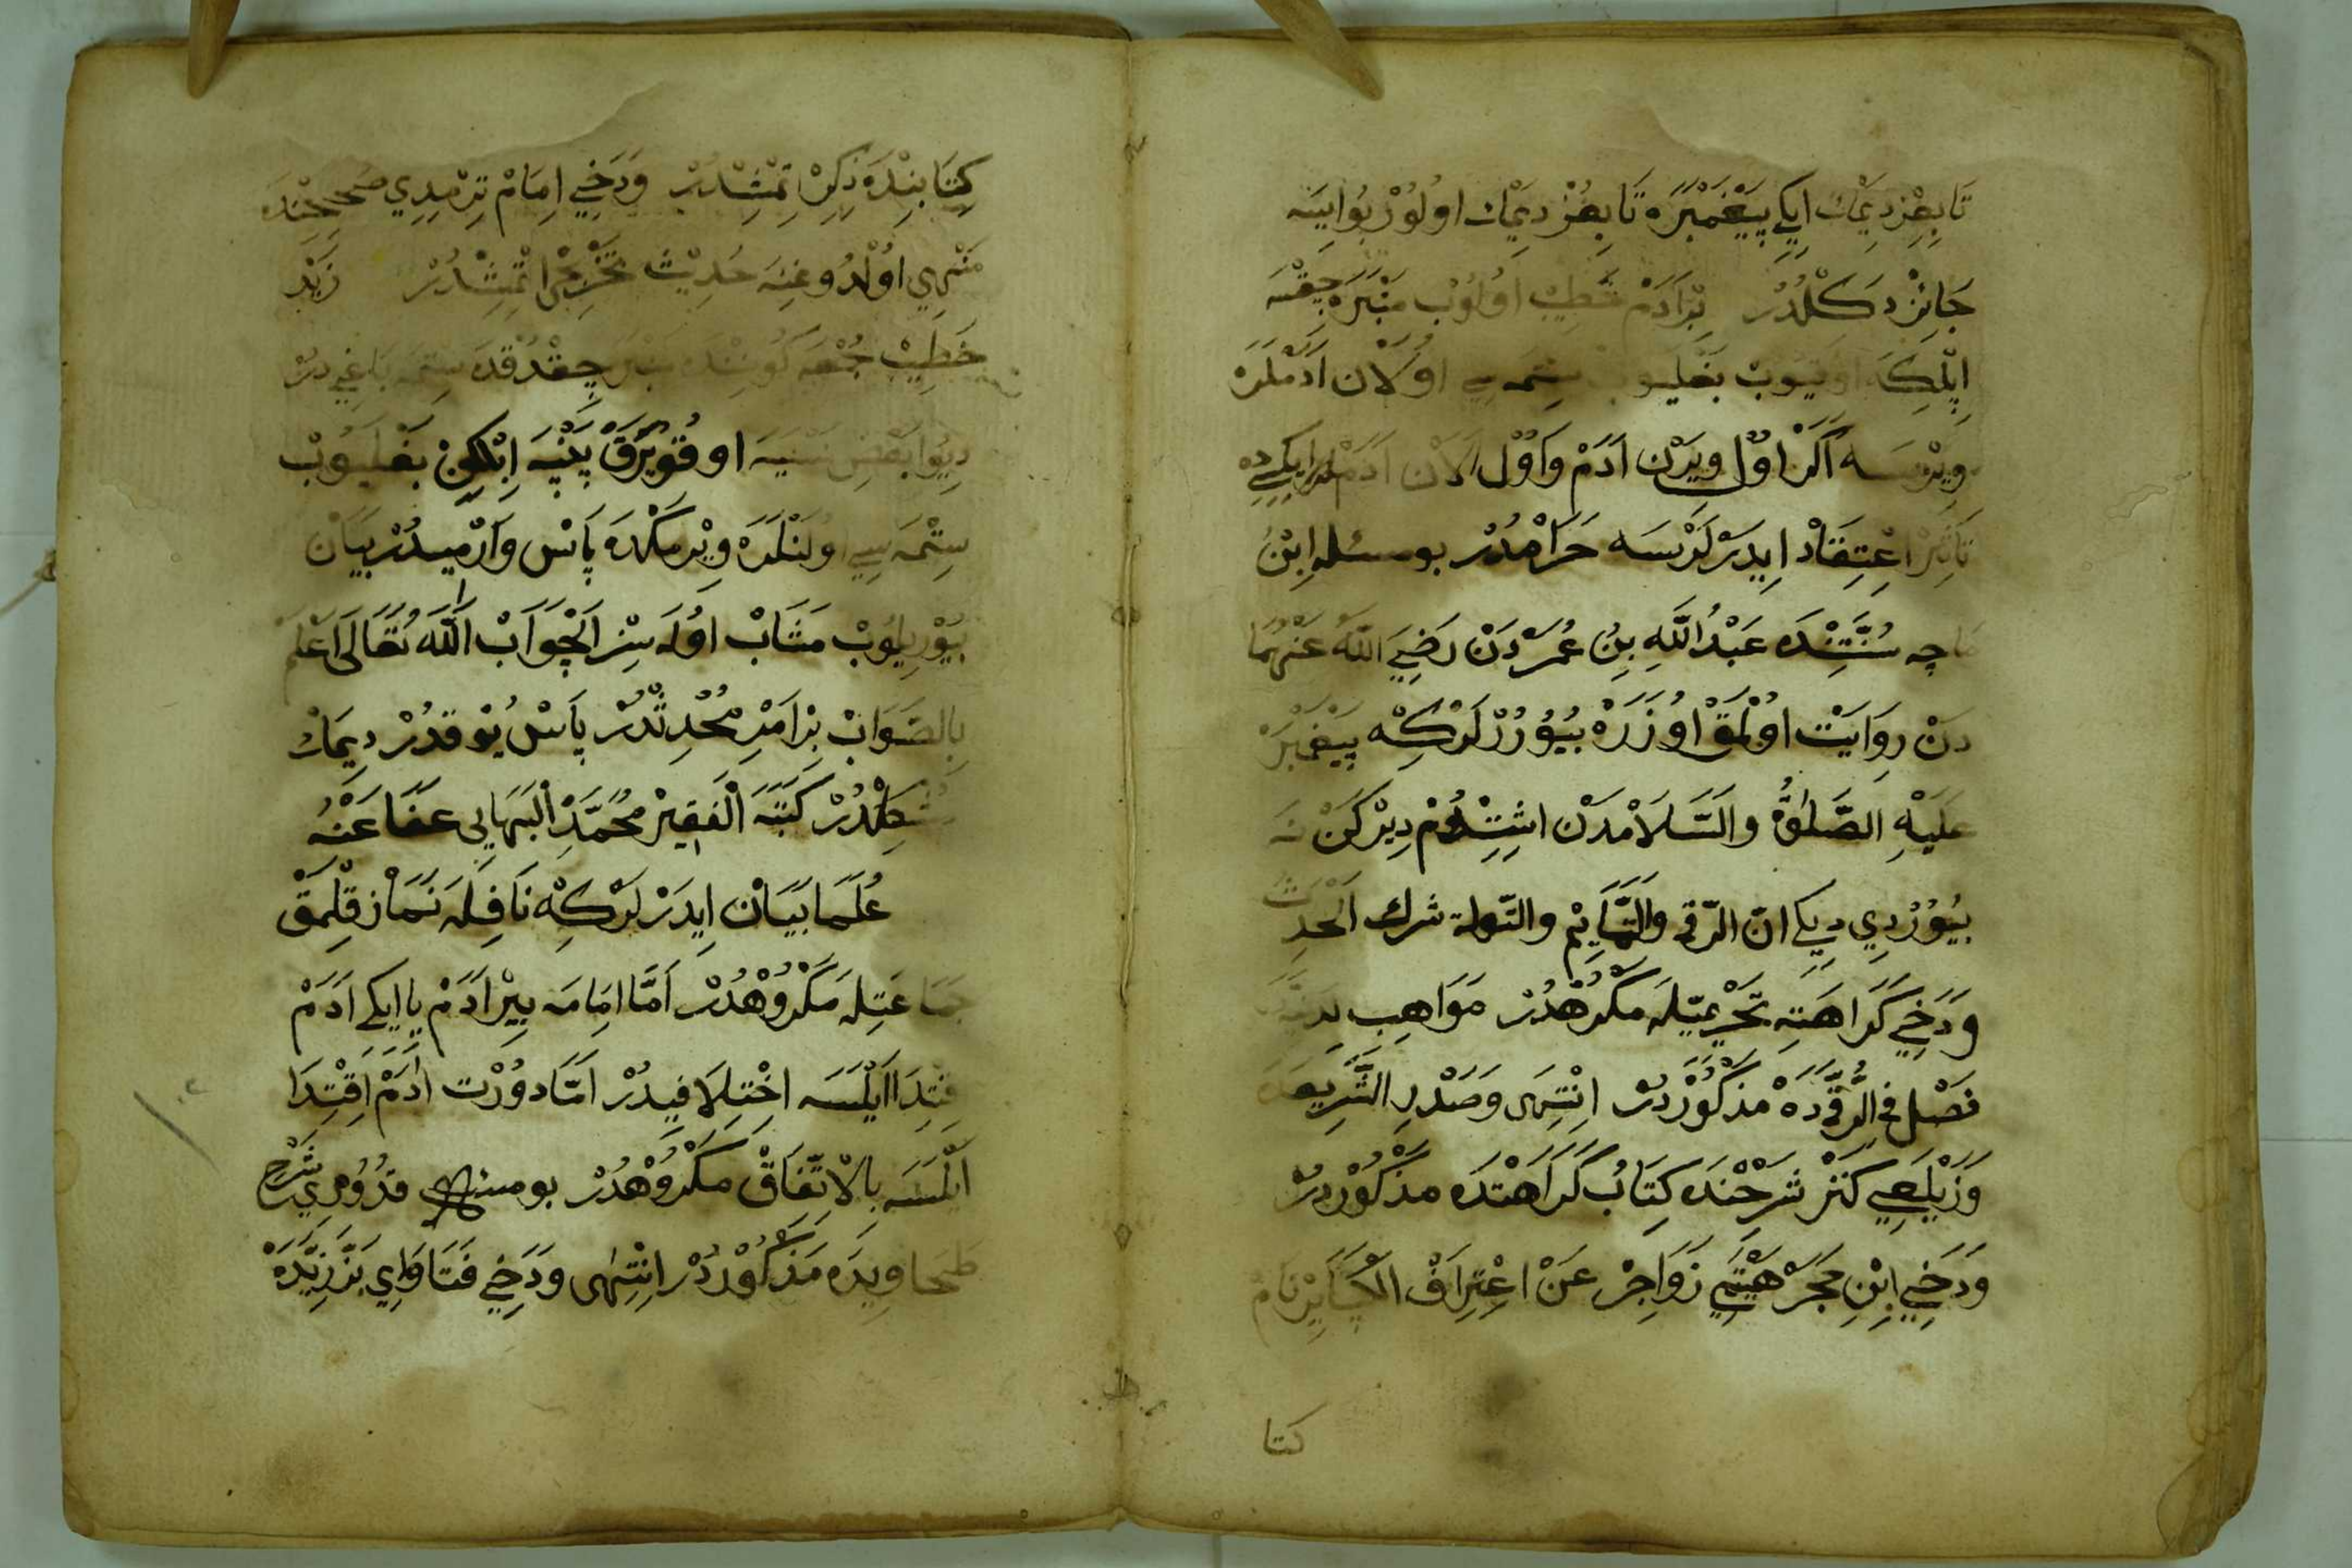 تَابِعِزْ دِيمَكْ اِيكِي پَيْغَمْبَرَه تَابِعُزْ دِيمَكْ اُولُوْرْ بُو اِيسَه
جَائِزْ دَكُلْدُرْ بِرْ اَدَمْ خَطِيبْ اُولُوبْ مِنْبَرَه چِقْسَه
اِپْلِكَه اُوقُيُوبْ بَغْلَيُوبْ سِتْمَه سِي اُولَانْ اَدَمْلَرَه
وِيرْسَه اَكَرْ اَوَّلْ وِيرَنْ اَدَمْ وَ اَوَّلْ اَلَانْ اَدَمْلَرْ اِيكِيسِي ده
تَأْثِيرْ اِعْتِقَادْ اِيدَرْلَرْسَه حَرَامْدُرْ بو مسئله اِبْنُ
مَاجَه سُنَنِنْدَه عَبْدُ اللّٰهِ بِنُ عُمَرْدَنْ رَضِيَ اللّٰهُ عَنْهُمَا
دَنْ رِوَايَتْ اُولْمَقْ اُوزَرَه بُيُورُرْلَرْكِه پَيْغَمْبَرْ
عَلَيْهِ الصَّلٰوةُ وَالسَّلَامْدَنْ اِشِتْدُمْ دِيرْكَنْ
بُيُورْدِي دِيكِي انّ الرّقى وَالتَّمَايِمْ والتّولة شرك اَلْحَدِيثْ
وَدَخِي كَرَاهَتِه تَحْرِيمِيَّلَه مَكْرُهْدُرْ مَوَاهِبِ
فَصْل فِي الرُّقَىدَه مَذْكُورْدِرْ اِنْتِهَى وَصَدْرِ الشَّرِيعَه
وَزَيْلَعِي كَنْزْ شَرْحِنْدَه كِتَابُ كَرَاهَتْدَه مَذْكُورْدِرْ
وَدَخِي اِبْنِ حَجَرْ هَيْتَمِي زَوَاجِرْ عَنْ اِعْتِرَافْ الْكَبَايِرْ نَامْ
كتا
كِتَابِنْدَه ذِكِرْ اِتْمِشْدُرْ وَدَخِي اِمَامْ تِرْمِذِي صَحِيحِنْدَه
مَنْهِي اُولْدُوغِنَه حَدِيثْ تَخْرِيجْ اِتْمِشْدُرْ زَيْد
خَطِيبْ جُمْعَه كُونِنْدَه مِنْبَرَه چِقْدُقْدَه سِتْمَه بَاغِي دِرْ
دِيُو بَعْضِ اُو قُويْرَقْ اِپْلِكِنْ بَغْلَيُوبْ
سِتْمَه سِي اُولَنْلَرَه وِيرْمَكْدَه بَاسْ وَارْمِيدُرْ بَيَانْ
بُيُورِيلُوبْ مَثَابْ اُولَه سِزْ اَلْجَوَابْ اَللّٰه تَعَالَى اَعْلَمْ
بِالصَّوَابْ بِرْ اَمْرِ مُحْدِثْدُرْ بَاسْ يُوقْدُرْ دِيمَكْ
دَكِلْدُرْ كَتَبَهُ الْفَقِيرْ مُحَمَّدْ اَلْبَهَايِي عَفَا عَنْهُ
عُلَمَا بَيَانْ اِيدَرْلَرْكِه نَافِلَه نَمَازْ قِلْمَقْ
جَمَاعَتِلَه مَكْرُوهْدُرْ اَمَّا اِمَامَه بِيرْ اَدَمْ يَا اِيكِي اَدَمْ
اِقْتِدَا اَيْلَسَه اِخْتِلَافِيدُرْ اَمَّا دُورْتْ اَدَمْ اِقْتِدَا
اَيْلَسَه بِالْاِتِّفَاقْ مَكْرُوهْدُرْ بو مسئله قُدُورِي شَرْحِ
طَحَاوِيدَه مَذْكُورْدُرْ اِنْتِهَى وَدَخِي فَتَاوَاىِ بَزَّزِيَّدَه